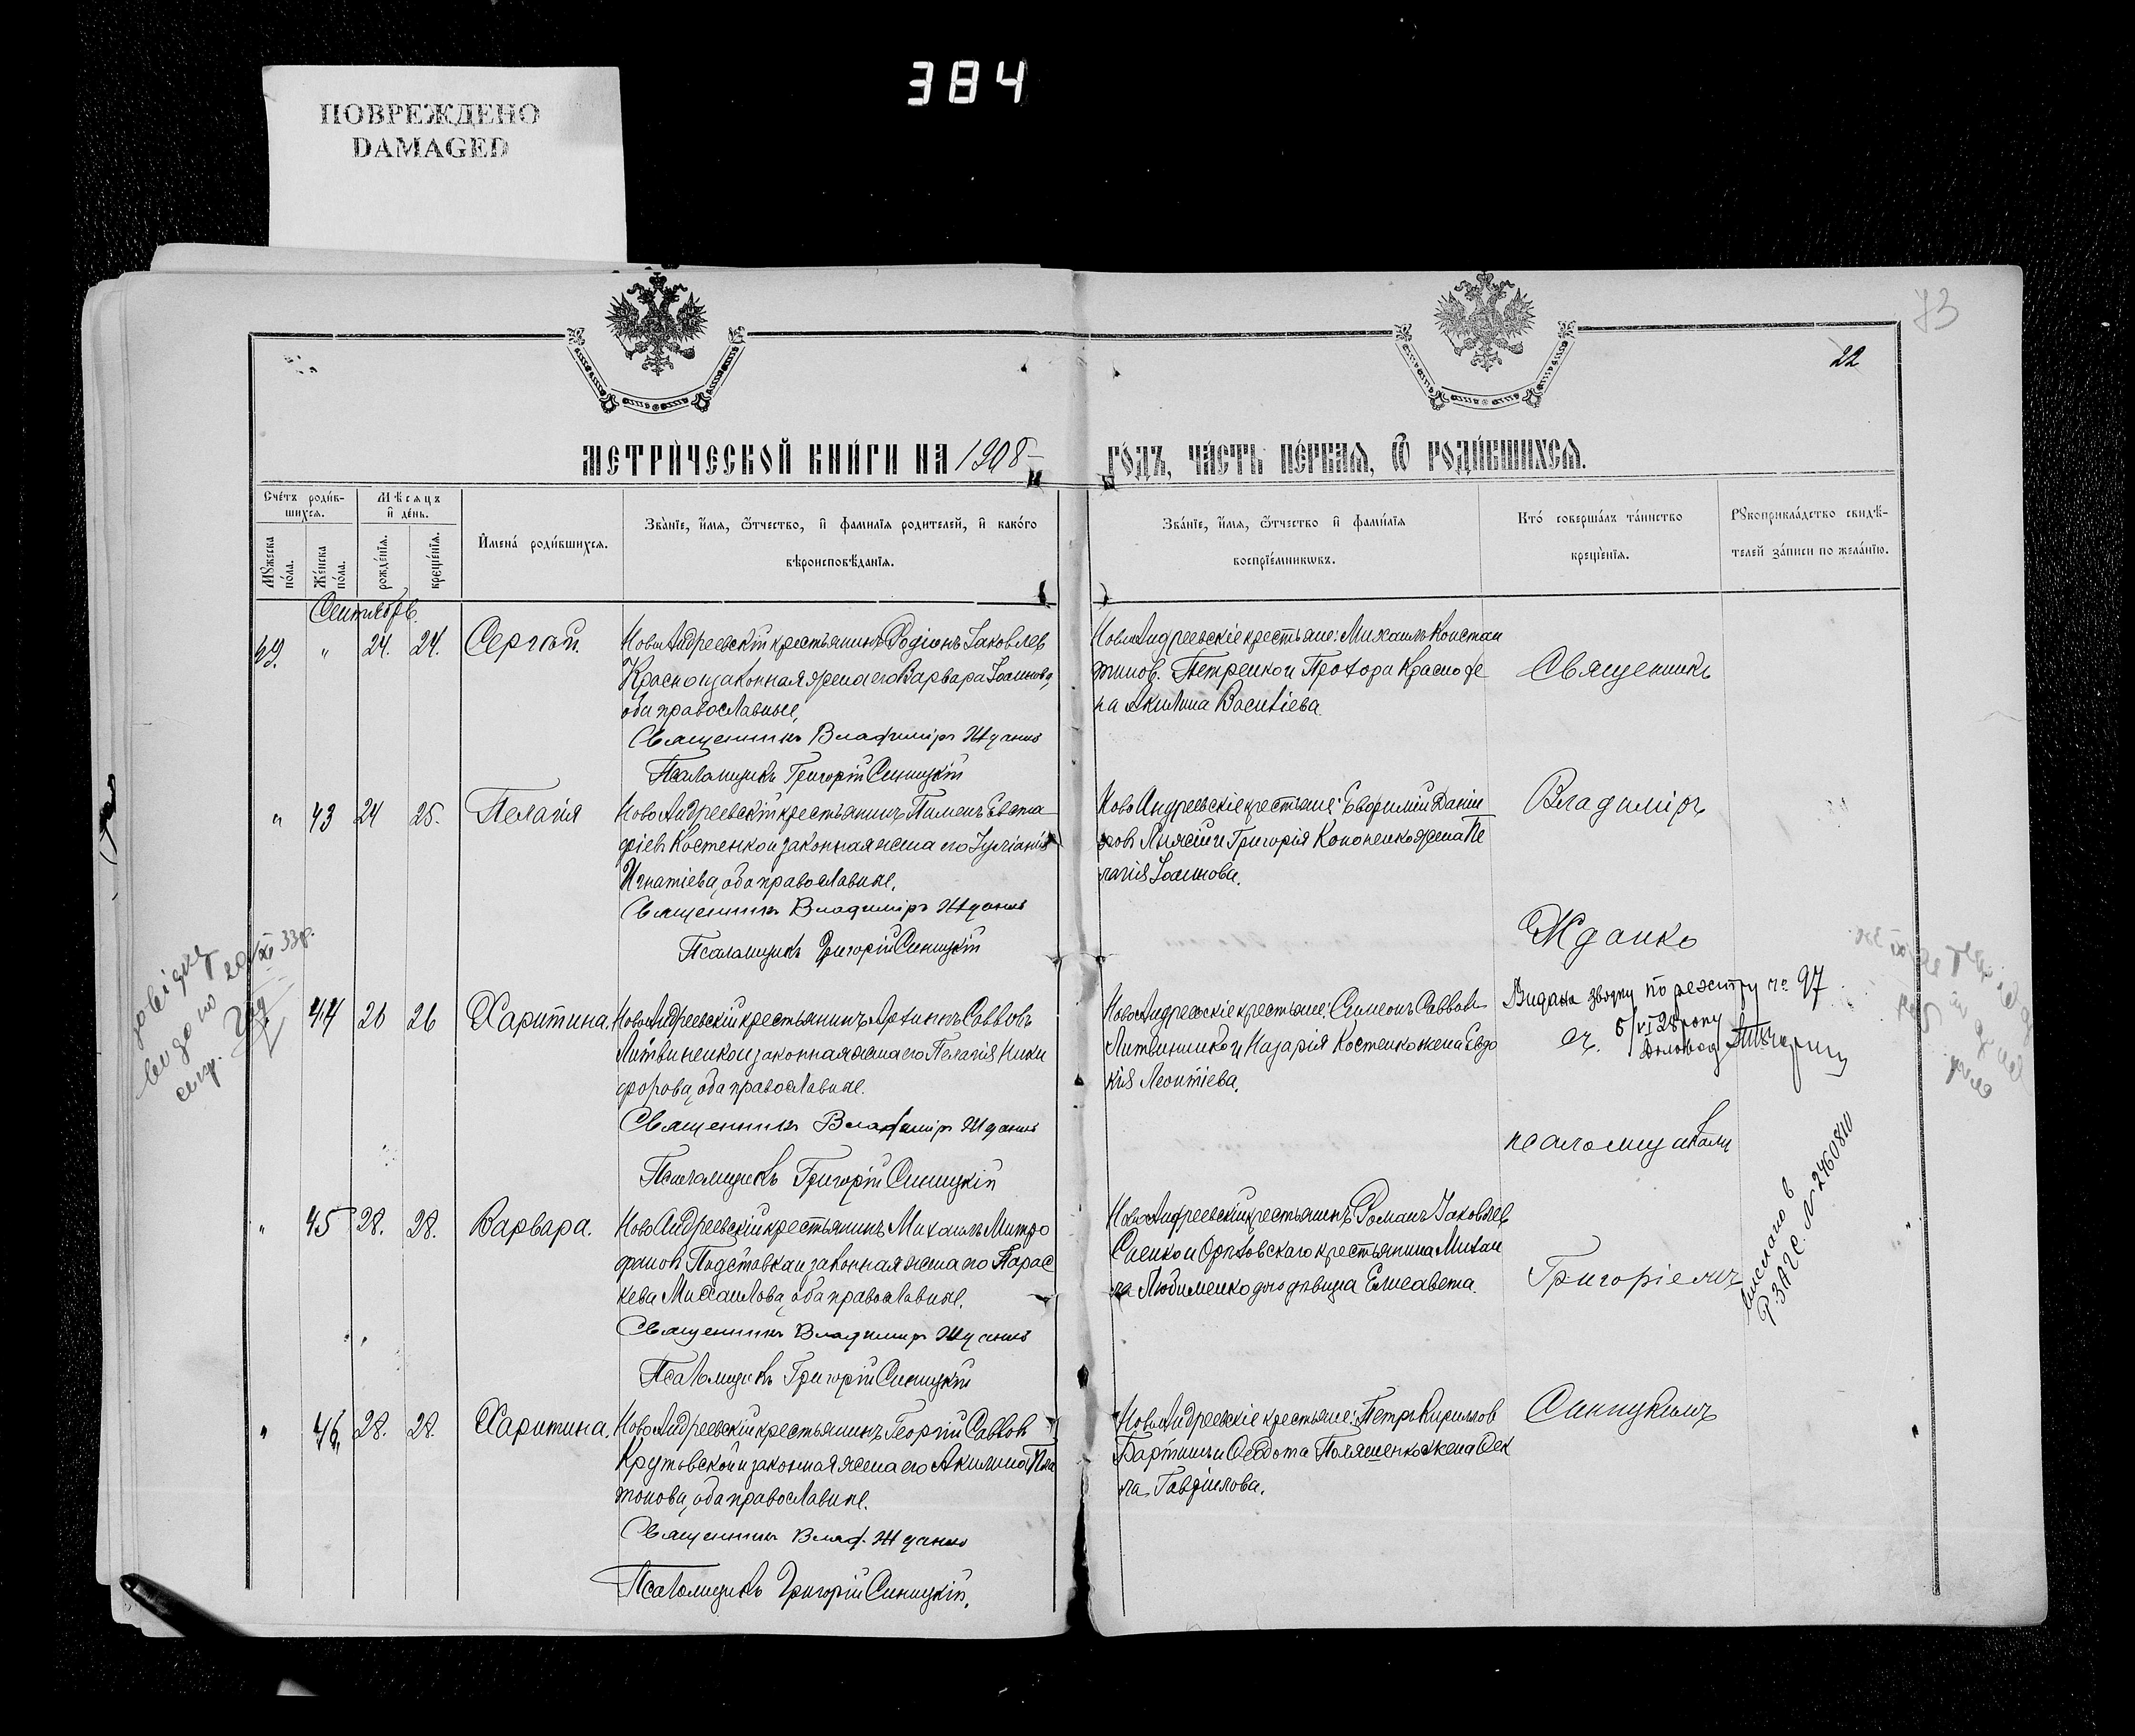 384
ПОВРЕЖДЕНО
DAMAGED
73
22
МЕТРИ́ЧЕСКОЙ КНИ́ГИ НА 1908
ГО́ДЪ, ЧА́СТЬ ПЕ́РВАЯ, Ѿ РОДИ́ВШИХСЯ.
Сче́тъ роди́вшихся.
Мѣ́сяцъ и҆ де́нь.
Мꙋ́жеска по́ла.
Же́нска по́ла.
рожде́нїѧ.
креще́нїѧ.
И҆мена̀ роди́вшихсѧ.
Зва́нїе, и҆́мѧ, ѻ҆́тчество, и҆ фами́лїѧ роди́телей, и҆ како́гѡ
вѣроисповѣ́данїѧ.
Зва́нїе, и҆́мѧ, ѻ҆́тчество и҆ фами́лїѧ
воспрїе́мникѡвъ.
Кто̀ соверша́лъ та́инство
креще́нїѧ.
Рꙋкоприкла́дство свидѣ́-
телей за́писи по жела́нїю.
Сентябрь.
49. " 24. 24. Сергій.
НовоАндреевскій крестьянинъ Родіонъ Іаковлев
Красно и законная жена его Варвара Іоаннова,
оба православные,
Священникъ Владиміръ Жданко
Псаломщикъ Григорій Синицкій
НовоАндреевскіе крестьяне: Михаилъ Констан
тинов. Петренко и Прохора Красно же
на Акилина Василіева.
Священникъ
" 43 24 25. Пелагія
НовоАндреевскій крестьянинъ Пименъ Евста
фіевъ Костенко и законная жена его Іуліанія
Игнатіева, оба православные.
Священникъ Владиміръ Жданко
Псаломщикъ Григорій Синицкій
НовоАндреевскіе крестьяне: Евфимій Даніи
ловъ и Григорія Кононенко жена Пе
лагія Іоаннова.
Владиміръ
Жданко
довідку
видано 20/XI 33р.
" 44 26 26 Харитина.
НовоАндреевскій крестьянинъ Архиппъ Саввовъ
Литвиненко и законная жена его Пелагія Ники
форова, оба православные.
Священникъ Владиміръ Жданко
Псаломщикъ Григорій Синицкій
НовоАндреевскіе крестьяне: Симеонъ Саввов
Литвиненко и Назарія Костенко жена Евдо
кія Леонтіева.
Видана по реэстру № 97
5/VI 28 року
псаломщикомъ
" 45 28. 28. Варвара.
НовоАндреевскій крестьянинъ Михаилъ Митро
фанов Подставка и законная жена его Парас
кева Михаилова, оба православные.
Священникъ Владиміръ Жданко
Псаломщикъ Григорій Синицкій
НовоАндреевскій крестьянинъ Романъ Іаковлев
Сненко и Орѣховскаго крестьянина Михаи
ла Любименко дочь дѣвица Елисавета.
Григоріемъ
выслано в
Р.ЗАГС. № 2460810
" 46 28. 28. Харитина.
НовоАндреевскій крестьянинъ Георгій Саввов
Крутовской и законная жена его Акилина Пла
тонова, оба православные.
Священникъ Влад. Жданко
Псаломщикъ Григорій Синицкій.
НовоАндреевскіе крестьяне: Петръ Кириллов
Бартишъ и Ѳеодота Поляшенко жена Ѳек
ла Гавріилова.
Синицкимъ